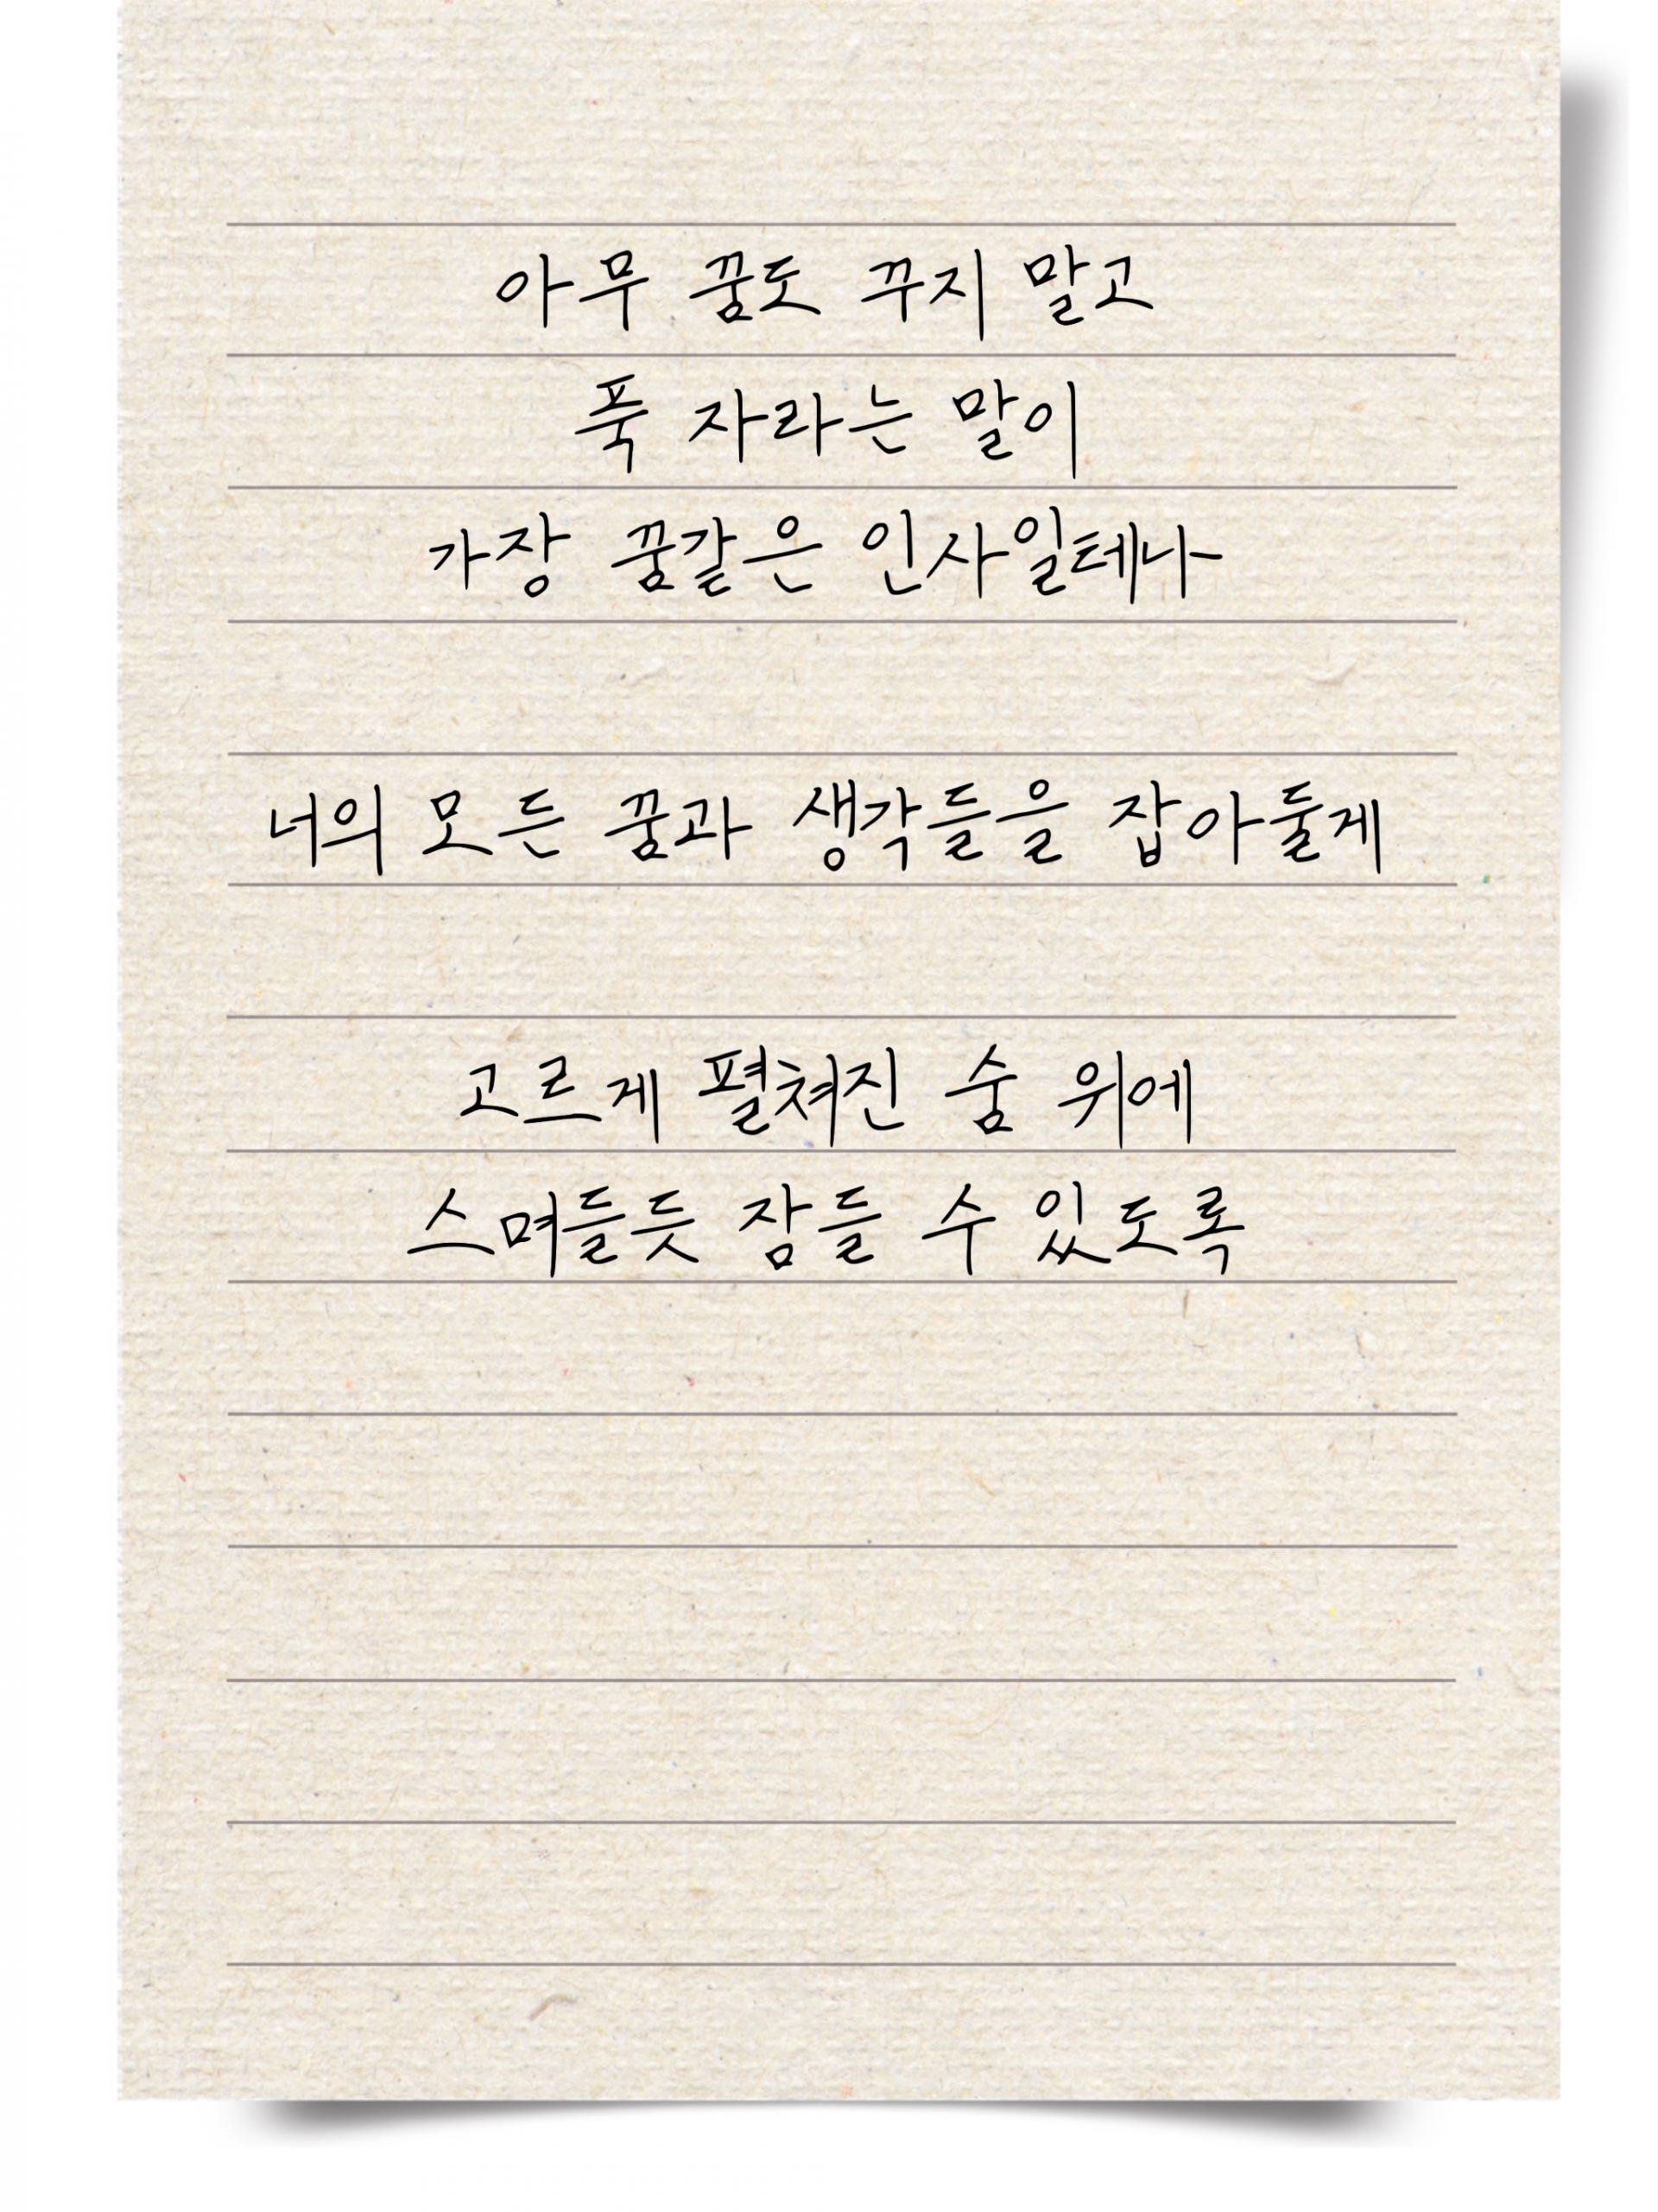 아무 꿈도 꾸지 말고
푹 자라는 말이
가장 꿈같은 인사일테니
너의 모든 꿈과 생각들을 잡아둘게
고르게 펼쳐진 숨 위에
스며들듯 잠들 수 있도록